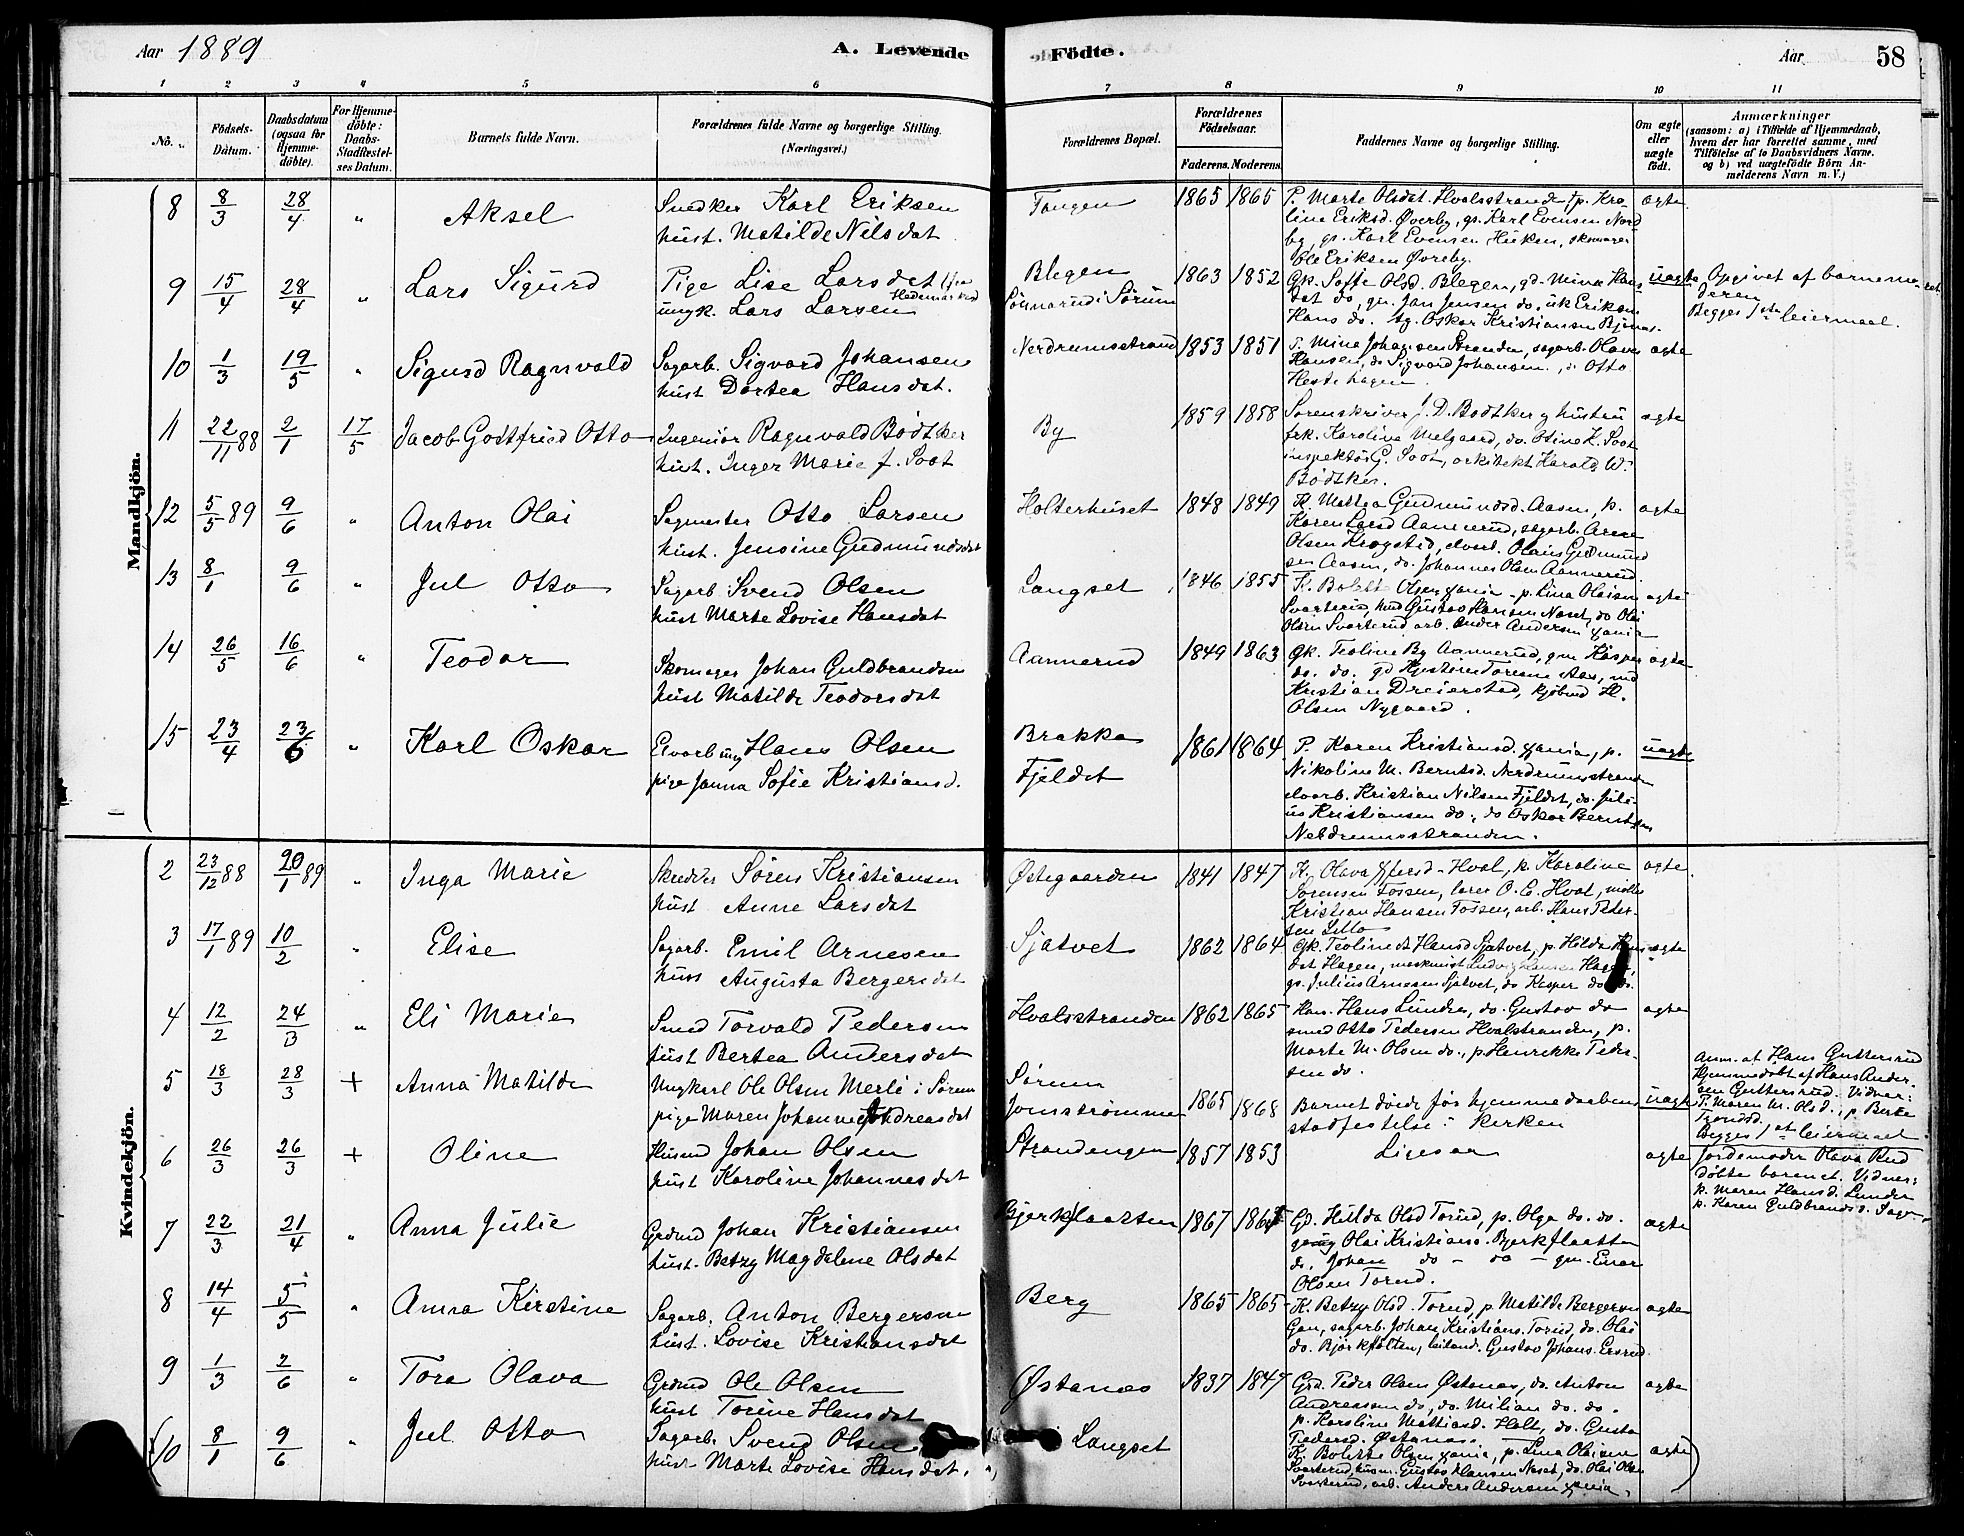 Aar 1889 A. Levende Födte. Aar 58
1 2 3 4 5 6 7 8 9 10 11
No. Födsels-Datum. Daabsdatum (ogsaa for Hjemme-döbte). For Hjemme-döbte: Daabs-Stadfæstel-ses Datum. Barnets fulde Navn. Forældrenes fulde Navne og borgerlige Stilling. (Næringsvei.) Forældrenes Bopæl. Forældrenes Födselsaar. Faderens. Moderens. Faddernes Navne og borgerlige Stilling. Om ægte eller uægte födt. Anmærkninger (saasom: a) i Tilfælde af Hjemmedaab, hvem der har forrettet samme, med Tilföielse af to Daabsvidners Navne. og b) ved uægtefödte Börn An-melderens Navn m. V.)
Mandkjön.
8 8/3 28/4 " Aksel Snedker Karl Eriksen Tangen 1865 1865 P. Marte Olsdat. Hvalsstrand, p. Kro-
hust. Matilde Nilsdat line Eriksd. Øverby, gs. Karl Evensen Nord
by, gs. Karl Evensen Huken, skomager
Ole Eriksen Øvreby. ægte
9 15/4 28/4 " Lars Sigurd Pige Lise Larsdet (fra Hedemarked Blegen 1863 1852 Gk. Sofie Olsd. Blegen, gd. Mina Hans
ungk. Lars Larsen Sönnarud i Sørum dat do, gm. Jan Jensen do, uk Erik
Hans do. Oskar Kristiansen uægte Opgivet af barnemo-
deren
Begges 1ste leiermaal.
10 1/3 19/5 " Sigurd Ragnvald Sagarb. Sigvard Johansen Nerdrumsstrand 1853 1851 P. Mina Johansen Stranden, sagarb. Olaves
hust Dortea Hansdat. Hansen, do Sigvard Johansen, do Otto
Hestehagen. ægte
11 22/11 88 2/1 17/5 Jacob Gottfried Otto Ingeniør Ragnvald Bødtker By 1859 1858 Sorenskriver J. D. Bødtker og hustru
hust. Inger Marie f. Soot frk. Karoline Melgaard, do. Stine K. Soot
inspektør G. Soot, arkitekt Harald W.
Bødtker. ægte
12 5/5 89 9/6 " Anton Olai Sagmester Otto Larsen Holterhuset 1848 1849 K. Mattea Gudmundsd. Aasen, p.
hust. Jensine Gudmundsdat Karen Larsd Aannerud, sagarb. Arne
Olsen Krogsted, elvarb. Olaus Gudmund
sen Aasen, do. Johannes Olsen Aannerud. ægte
13 8/1 9/6 " Jul Otto Sagarb. Svend Olsen Langset 1846 1855 K. Bolette Olsen Xania, p. Lina Olaisen
hust Marte Lovise Hansdat Svarterud, husm Gustav Hansen Næset, do Olai
Olsen Svarterud, arb. Anders Andersen Xania ægte
14 26/5 16/6 " Teodor Skomager Johan Guldbrandsen Aannerud 1849 1863 Gk. Teoline By Aannerud, gm Kasper
hust Matilde Teodorsdat do. do. gd
Kristian Dreiersted, kjøbmd H.
Olsen Nygaard. ægte
15 23/4 23/6 " Karl Oskar Elvarb ung Hans Olsen Brakka 1861 1864 P. Karen Kristiansd. Xania, p.
pige Janna Sofie Kristiansd. Fjeldet Nikoline M. Berntsd. Nerdrumsstranden
elvarb. Kristian Nilsen Fjeldet, do. Juli-
us Kristiansen do, do Oskar Berntsen
Nerdrumsstranden. uægte
Kvindekjön.
2 23/12 88 20/1 89 " Inga Marie Skredder Søren Kristiansen Østegaarden 1841 1847 K. Olava Hval, p. Karoline
hust Anne Larsdat Sørensen Fossen, lærer O. E. Hval,
Kristian Hansen Fossen, arb. Hans Peder-
sen ægte
3 17/1 89 10/2 " Elise Sagarb. Emil Arnesen Sjatvet 1862 1864 Gk. Teoline Hansd Sjatvet, p. Hilda Hans
hust Augusta Bergersdat dat Hagen, maskinist Ludvig Hansen Hagen,
gs. Julius Arnesen Sjatvet, do Kasper do do. ægte
4 12/2 24/3 " Eli Marie Smed Torvald Pedersen Hvalsstranden 1862 1865 Hans Lunder, do. Gustav do
hust Bertea Andersdat smed Otto Pedersen Hvalstranden, p.
Marte M. Olsen do., p Henrikke Peder-
sen do. ægte
5 18/3 28/3 + Anna Matilde Ungkarl Ole Olsen Merli i Sørum Sørum 1865 1868 Barnet døde før hjemmedaabens
pige Maren Johanne Andreasdat Jonsstrømmen stadfestelse i kirken uægte Anm. at Hans Guttersrud
Hjemmedøbt af Hans Ander-
sen Guttersrud. Vidner:
P. Maren M. Olsd., p. Berte
Begges 1ste leiermaal
6 26/3 26/3 + Oline Husmd Johan Olsen Strandengen 1857 1853 Ligesaa ægte
hust Karoline Johannesdat Jordemoder Olava Rud
døbte barnet. Vidner:
k. Maren Hansd. Lunder
p. Karen Guldbrandsd.
7 22/3 21/4 " Anna Julie Grdmd Johan Kristiansen Bjerkflaatten 1867 Gd. Hulda Olsd Torud, p. Olga do. do.
hust. Betzy Magdalene Olsdat Olai Kristians. Bjerkflaatten
do. Johan do — do — gm. Einar
Olsen Torud. ægte
8 14/4 5/5 " Anna Kirstine Sagarb. Anton Bergersen Berg 1865 1865 K. Betzy Olsd. Torud, p Matilde Bergersen
hust. Lovise Kristiansdat Gan, sagarb. Johan Kristians. Torud, do. Olai
do. Bjørkflåtten, leiland. Gustav Johans. Ersrud. ægte
9 1/3 2/6 " Tora Olava Grdmd Ole Olsen Østanes 1837 1847 Grd. Peder Olsen Østanes, do. Anton
hust Torine Hansdat Andreassen do, do. Milian do. do.
p. Karoline Mattiasd. Holt, do. Gusta
Pedersd. Østanes. ægte
(10 8/1 9/6 " Jul Otto Sagarb. Svend Olsen Langset K. Bolette Olsen Xania, p. Lina Olaisen
hust Marte Lovise Hansdat. Svarterud, husm. Gustav Hansen Næset, do. Olai Olsen
Svarterud, arb. Anders Andersen Xania. ægte)